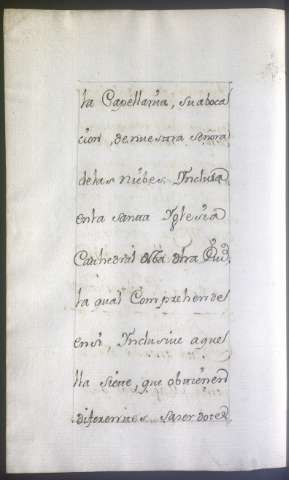 la Capellania, su aboca
cion, de nuestra Señora
de las nubes. Inclusa
en la santa Yglesia
Cathedral de dha Ciud,
la qual Comprehende
en si, Inclusive aque
lla siete, que obtienen
diferentes Saserdotes